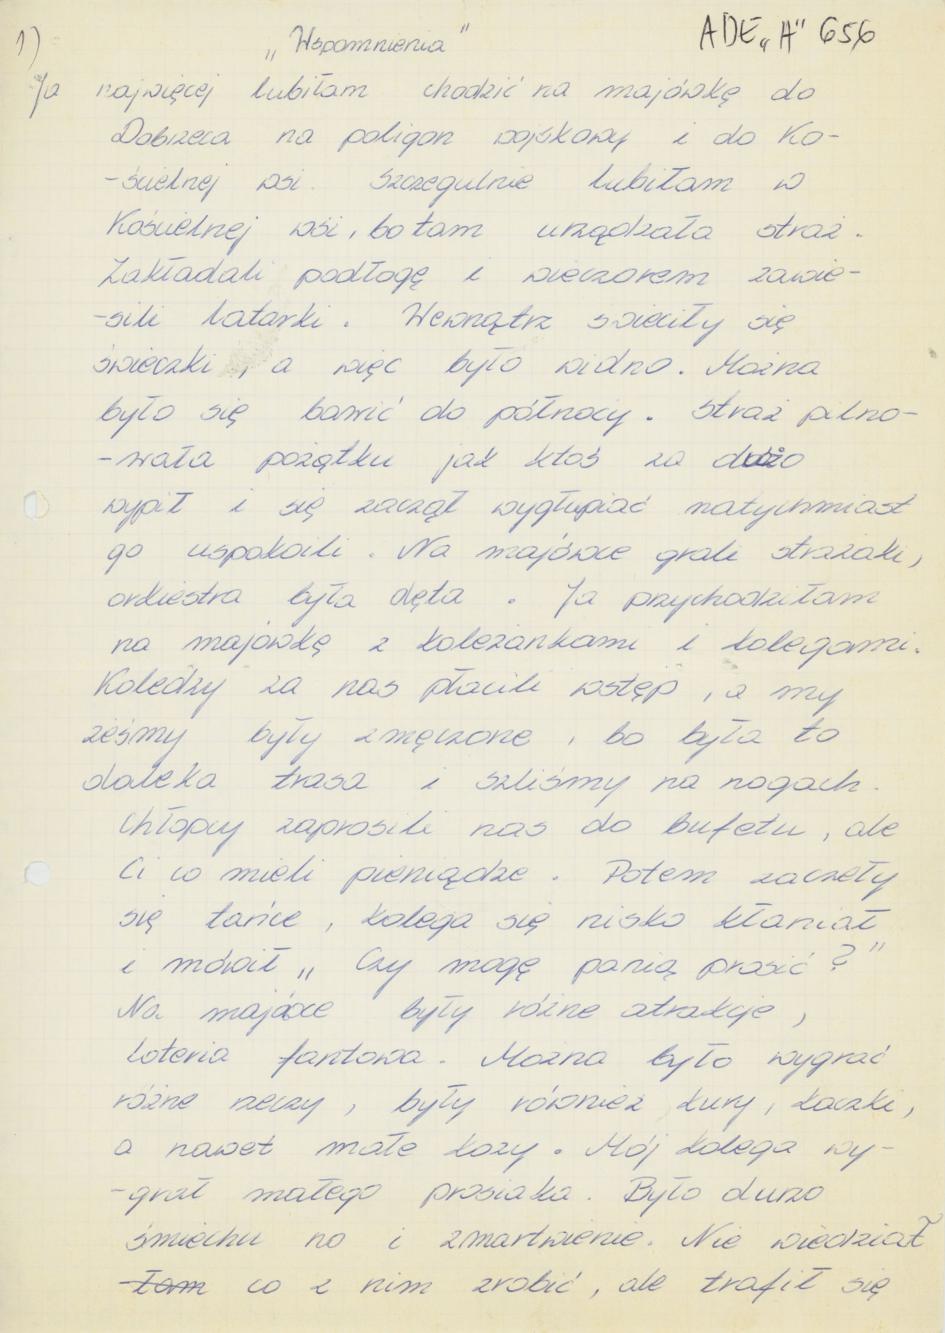 1) „Wspomnienia" ADE „A" 656
Ja najwięcej lubiłam chodzić na majówkę do
Dobrzeca na poligon wojskowy i do Ko-
-ścielnej wsi. Szczegulnie lubiłam w
Kościelnej wsi, bo tam urządzała straż.
Zakładali podłogę i wieczorem zawie-
-sili latarki. Wewnątrz świeciły się
świeczki, a więc było widno. Można
było się bawić do północy. Straż pilno-
-wała pożątku jak ktoś za dużo
wypił i się zaczął wygłupiać natychmiast
go uspokoili. Na majówce grali strażaki,
orkiestra była dęta. Ja przychodziłam
na majówkę z koleżankami i kolegami.
Koledzy za nas płacili wstęp, a my
żeśmy były zmęczone, bo była to
daleka trasa i szliśmy na nogach.
Chłopcy zaprosili nas do bufetu, ale
Ci co mieli pieniądze. Potem zaczeły
się tańce, kolega się nisko kłaniał
i mówił „Czy mogę panią prosić?"
Na majówce były różne atrakcje,
loteria fantowa. Można było wygrać
różne rzeczy, były również kury, kaczki,
a nawet małe kozy. Mój kolega wy-
-grał małego prosiaka. Było dużo
śmiechu no i zmartwienie. Nie wiedział
tam co z nim zrobić, ale trafił się